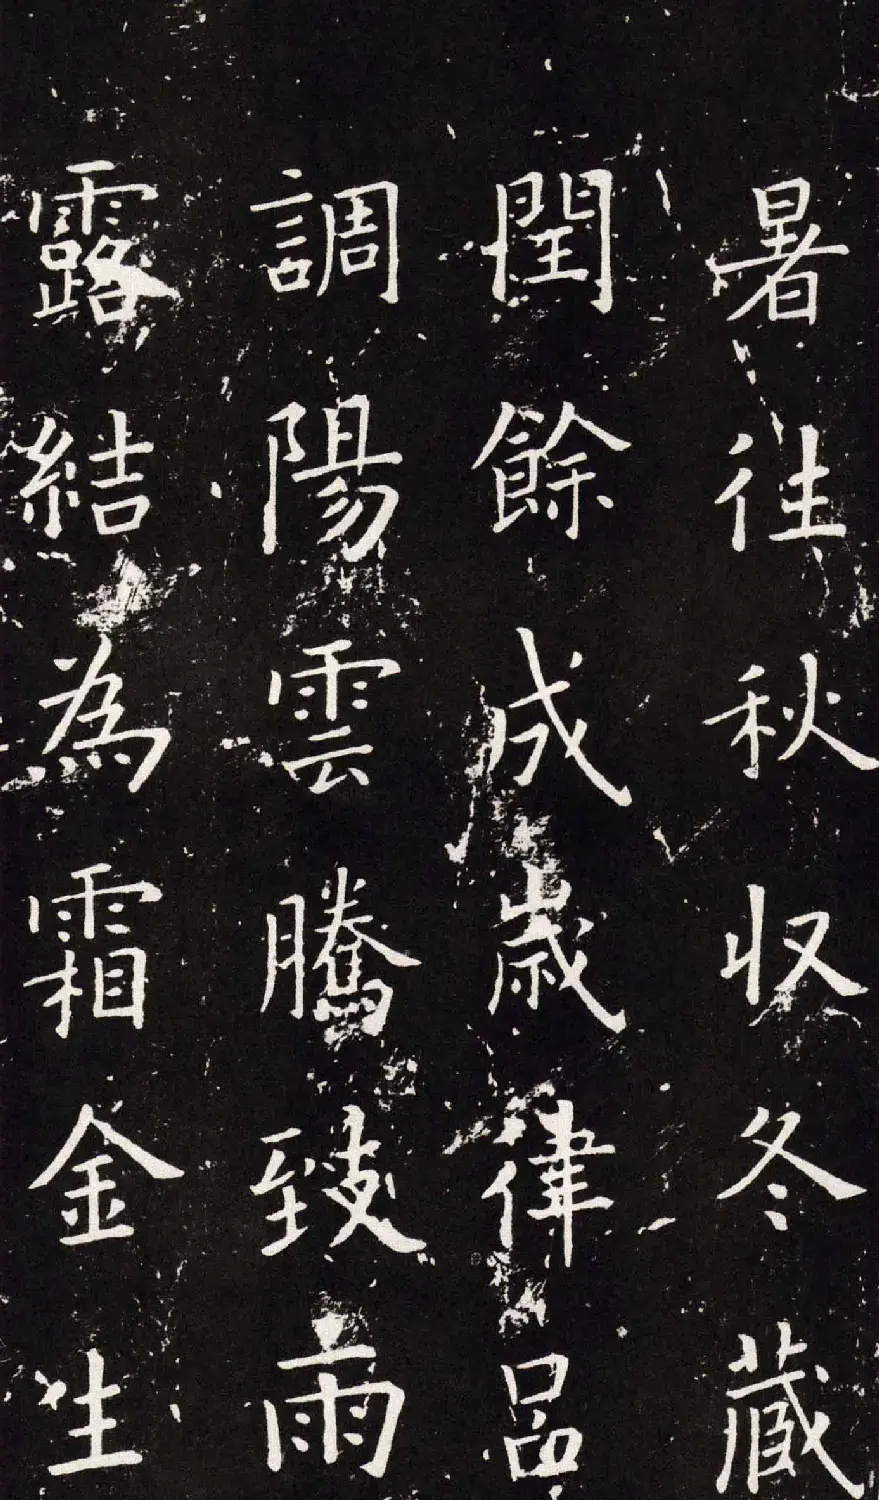 暑往秋収冬藏
閏餘成歲律呂
調陽雲騰致雨
露結為霜金生